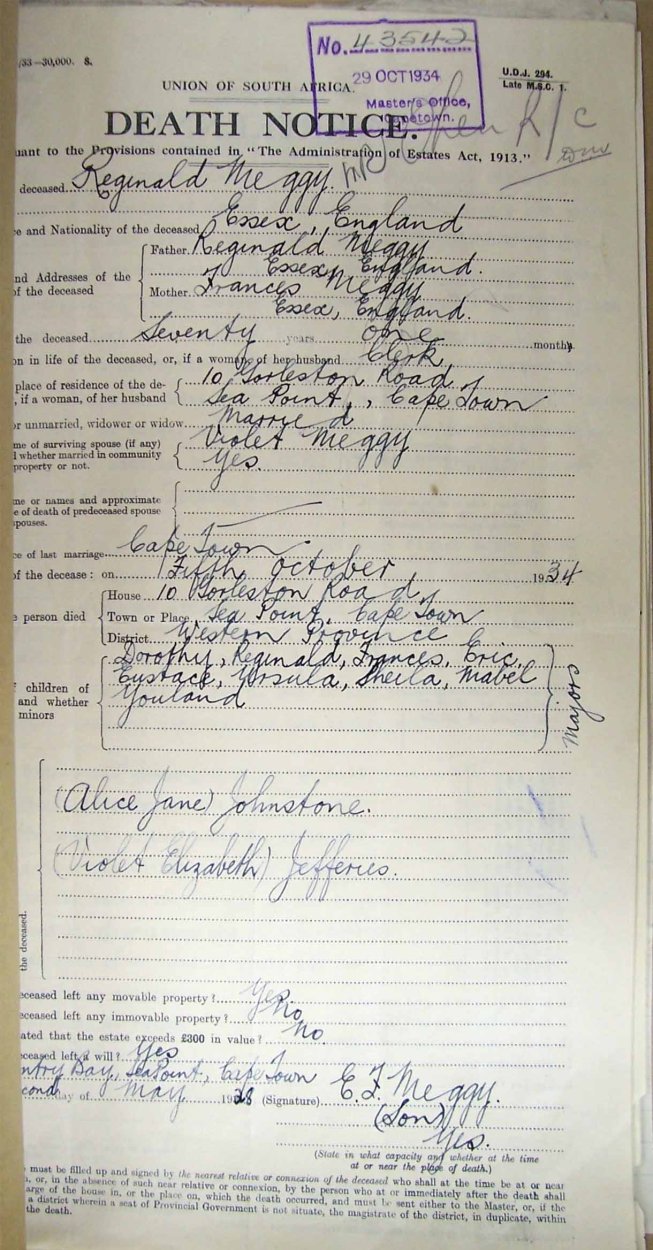 /33—30,000. S.
No. 43542
29 OCT 1934
Master's Office,
U.D.J. 294.
Late M.S.C. 1.
UNION OF SOUTH AFRICA.
DEATH NOTICE.
uant to the Provisions contained in "The Administration of Estates Act, 1913."
deceased Reginald Meggy
e and Nationality of the deceased Essex, England
Father Reginald Meggy
Essex, England.
nd Addresses of the
of the deceased
Mother Frances Meggy
Essex, England.
the deceased Seventy years one months
on in life of the deceased, or, if a woman, of her husband Clerk
place of residence of the de-
, if a woman, of her husband
10 Gorleston Road,
Sea Point, Cape Town
or unmarried, widower or widow Married
me of surviving spouse (if any)
l whether married in community
property or not.
Violet Meggy
Yes.
me or names and approximate
e of death of predeceased spouse
spouses.
ce of last marriage Cape Town
of the decease: on Fifth October 1934
e person died
House 10 Gorleston Road,
Town or Place Sea Point, Cape Town
District Western Province
f children of
and whether
minors
Dorothy, Reginald, Frances, Eric,
Eustace, Ursula, Sheila, Mabel
Youland
Majors
(Alice Jane) Johnstone.
(Violet Elizabeth) Jefferies.
the deceased.
eceased left any movable property? Yes.
eceased left any immovable property? No
ated that the estate exceeds £300 in value? No.
eceased left a will? Yes
ntry Bay, Sea Point, Cape Town
cond day of May 1928 (Signature) E. F. Meggy.
(Son)
Yes.
(State in what capacity and whether at the time
at or near the place of death.)
must be filled up and signed by the nearest relative or connexion of the deceased who shall at the time be at or near
, or, in the absence of such near relative or connexion, by the person who at or immediately after the death shall
arge of the house in, or the place on, which the death occurred, and must be sent either to the Master, or, if the
a district wherein a seat of Provincial Government is not situate, the magistrate of the district, in duplicate, within
the death.